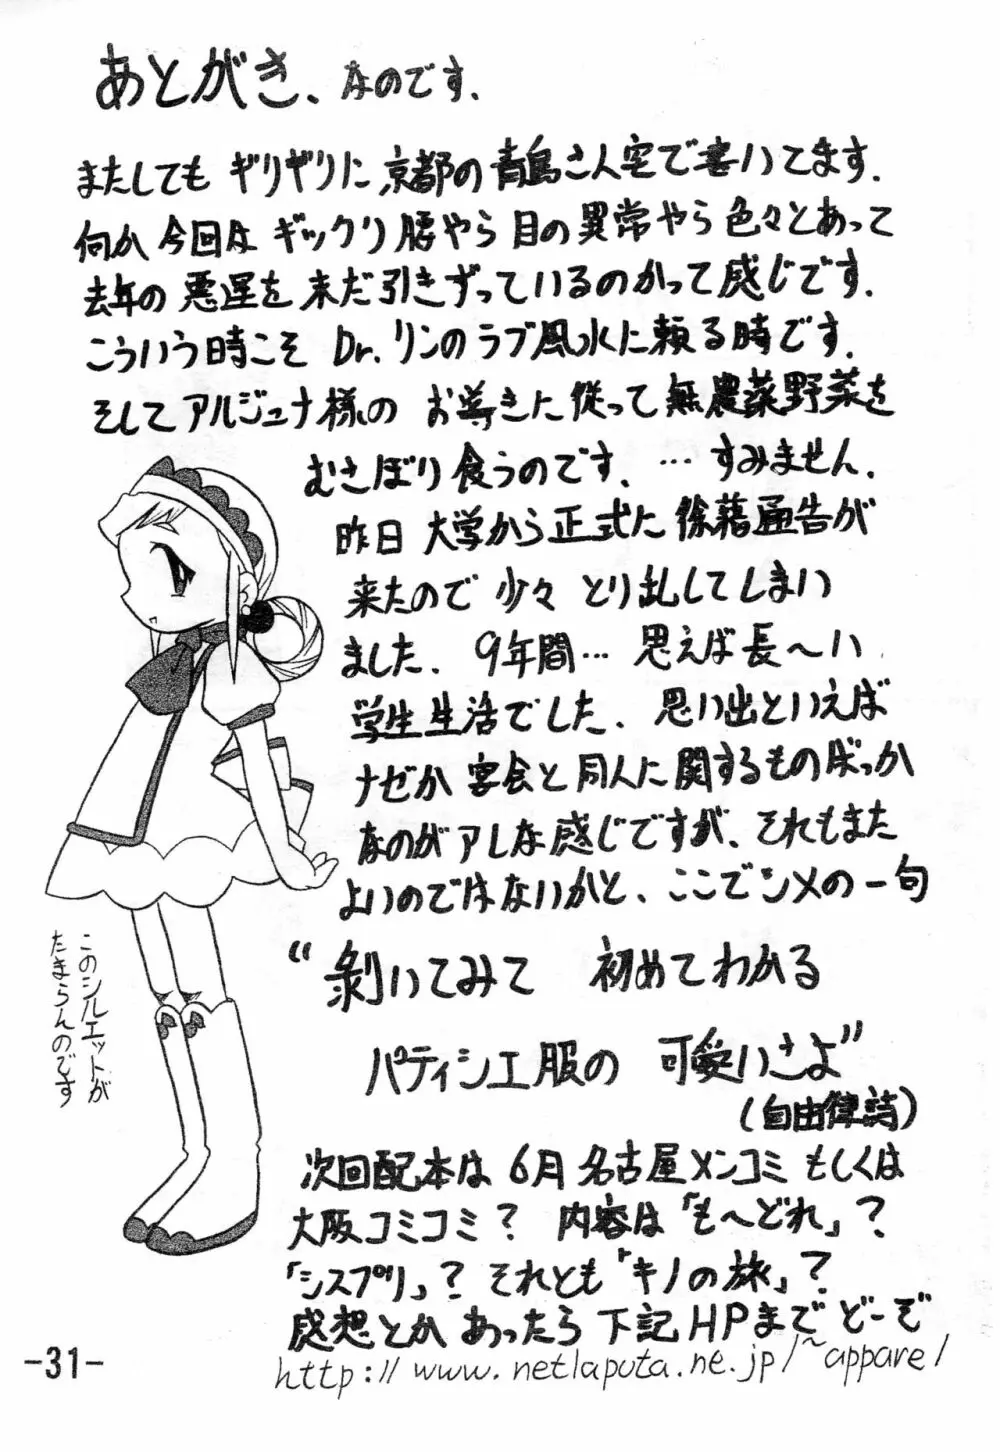 あとがき、なのです.
またしても ギリギリに 京都の青島さん宅で書いてます.
何か今回は ギックリ腰やら目の異常やら色々とあって
去年の悪運を未だ引きずっているのかって感じです.
こういう時こそ Dr.リンのラブ風水に頼る時です.
そしてアルジュナ様の お導きに従って無農薬野菜を
むさぼり食うのです. … すみません.
昨日 大学から正式に 除籍通告が
来たので 少々 とり乱してしまい
ました. 9年間… 思えば長〜い
学生生活でした. 思い出といえば
ナゼか宴会と同人に関するものばっか
なのがアレな感じですが、それもまた
よいのではないかと、ここでシメの一句
“剥いてみて 初めてわかる
パティシエ服の 可愛いさよ”
(自由律詩)
このシルエットが
たまらんのです
次回配本は 6月 名古屋メンコミ もしくは
大阪コミコミ? 内容は「も〜どれ」?
「シスプリ」? それとも「キノの旅」?
感想とかあったら 下記HPまで どーぞ
http://www.netlaputa.ne.jp/~appare/
-31-